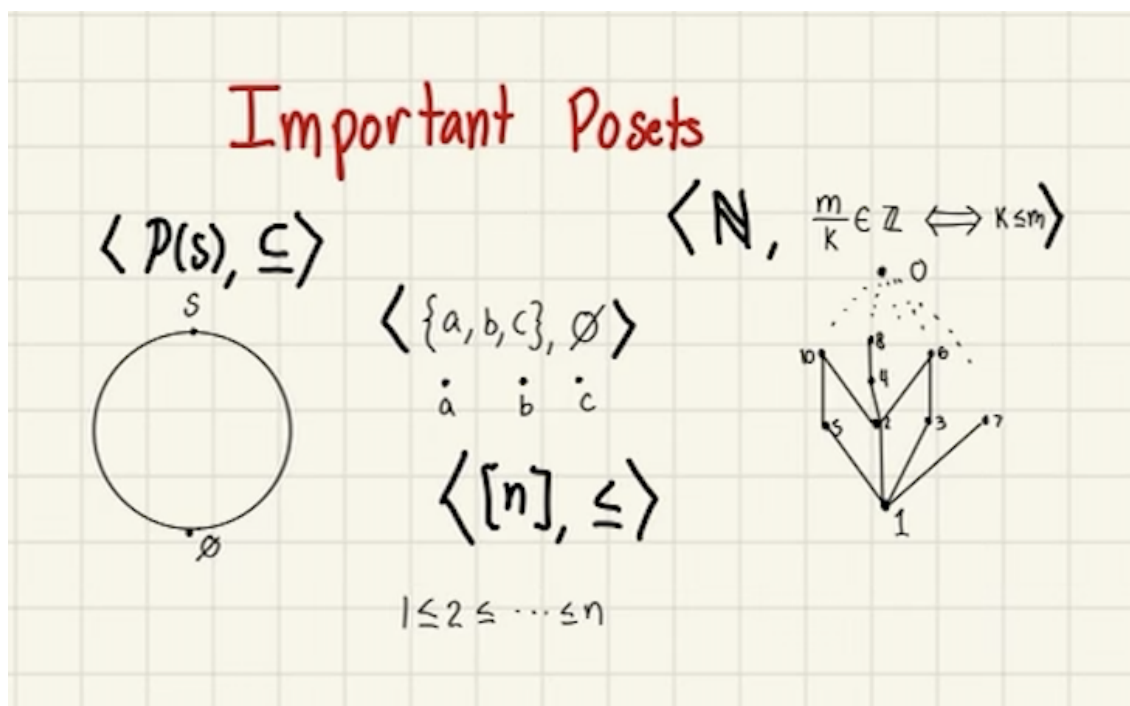 Important Posets
⟨P(s), ⊆⟩
S
∅
⟨{a,b,c}, ∅⟩
a b c
⟨[n], ≤⟩
1≤2≤ ··· ≤n
⟨ℕ, m/k ∈ ℤ ⟺ K≤m⟩
0
8
10 6
4
5 2 3 7
1